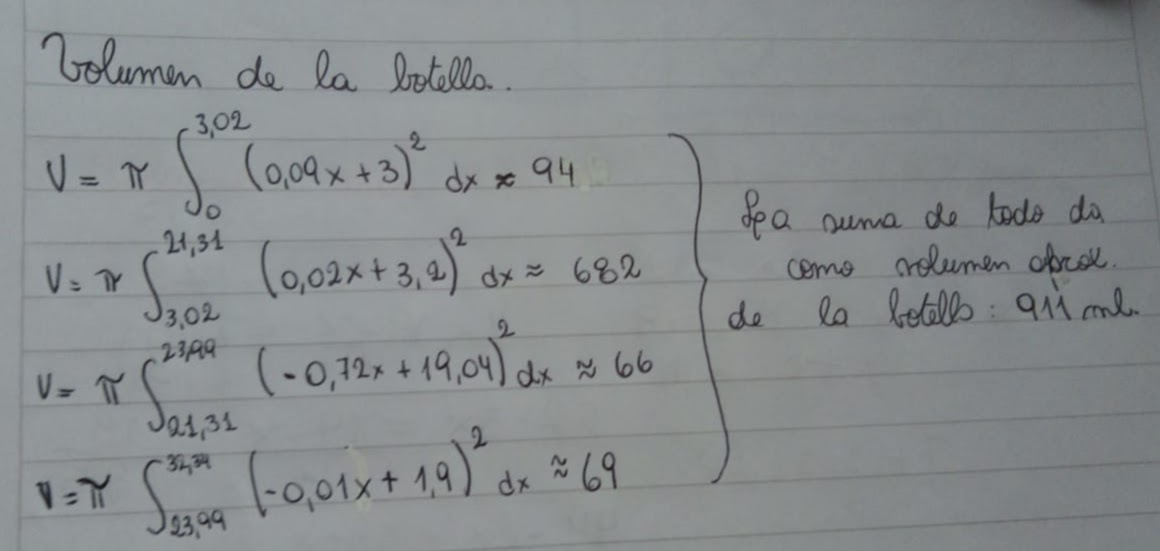 Volumen de la botella.
V = π ∫₀^3,02 (0,09x + 3)² dx ≈ 94
V = π ∫_3,02^21,31 (0,02x + 3,2)² dx ≈ 682
V = π ∫_21,31^23,99 (-0,72x + 19,04)² dx ≈ 66
V = π ∫_23,99^32,34 (-0,01x + 1,9)² dx ≈ 69
La suma de todo da
como volumen aprox.
de la botella: 911 ml.